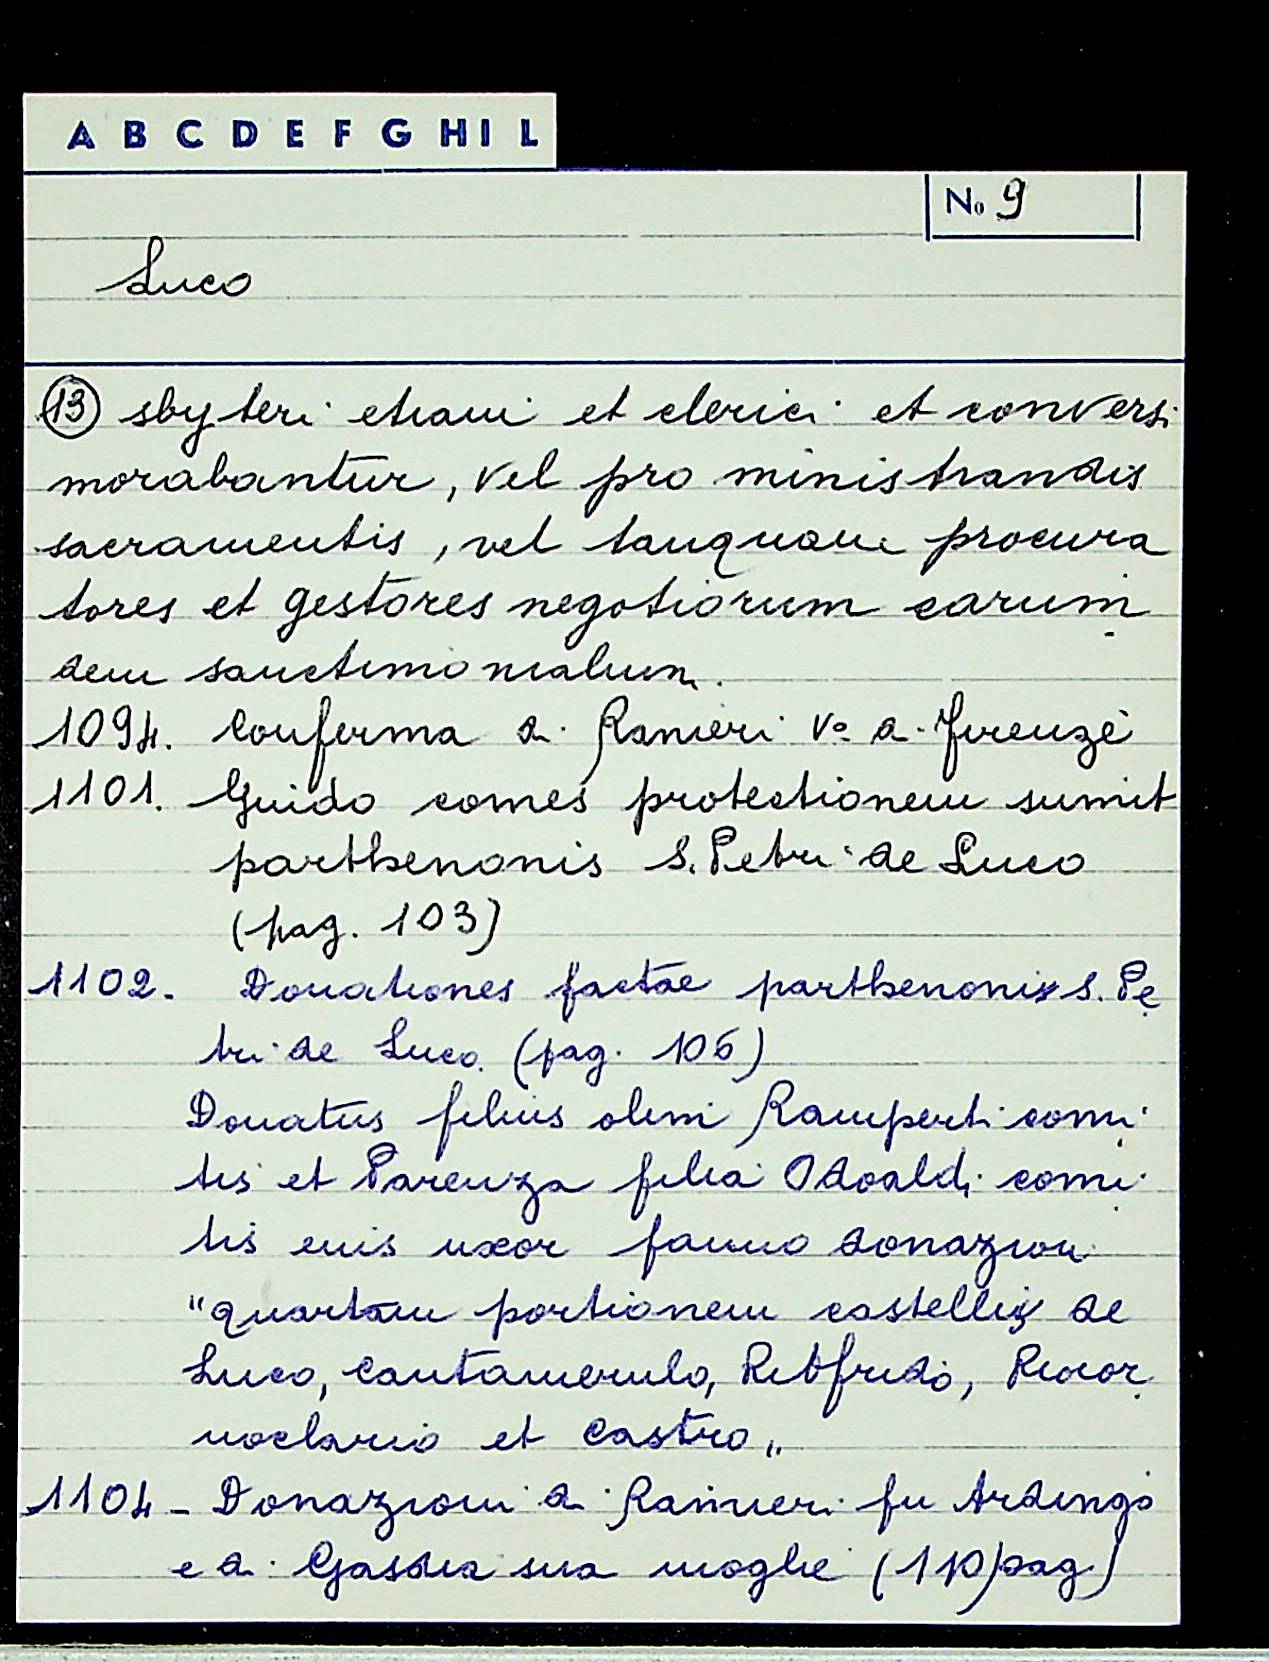 A B C D E F G H I L
No 9
Luco
(13) sbyteri etiam et clerici et conversi
morabantur, vel pro ministrandis
sacramentis, vel tanquam procura
tores et gestores negotiorum earum
dem sanctimonialium.
1094. Conferma di Ranieri Vo di Firenze
1101. Guido comes protectionem sumit
parthenonis S. Petri de Luco
(pag. 103)
1102. Donationes factae parthenonis S. Pe
tri de Luco. (pag. 106)
Donatus filius olim Ramperti comi
tis et Parenza filia Odoaldi comi
tis eius uxor fanno donazioni
"quartam portionem castellis de
Luco, Cantamerulo, Ritfrido, Riocor
noclario et Castro"
1104 - Donazioni di Ranieri fu Ardingo
e di Gasdia sua moglie (110 pag.)